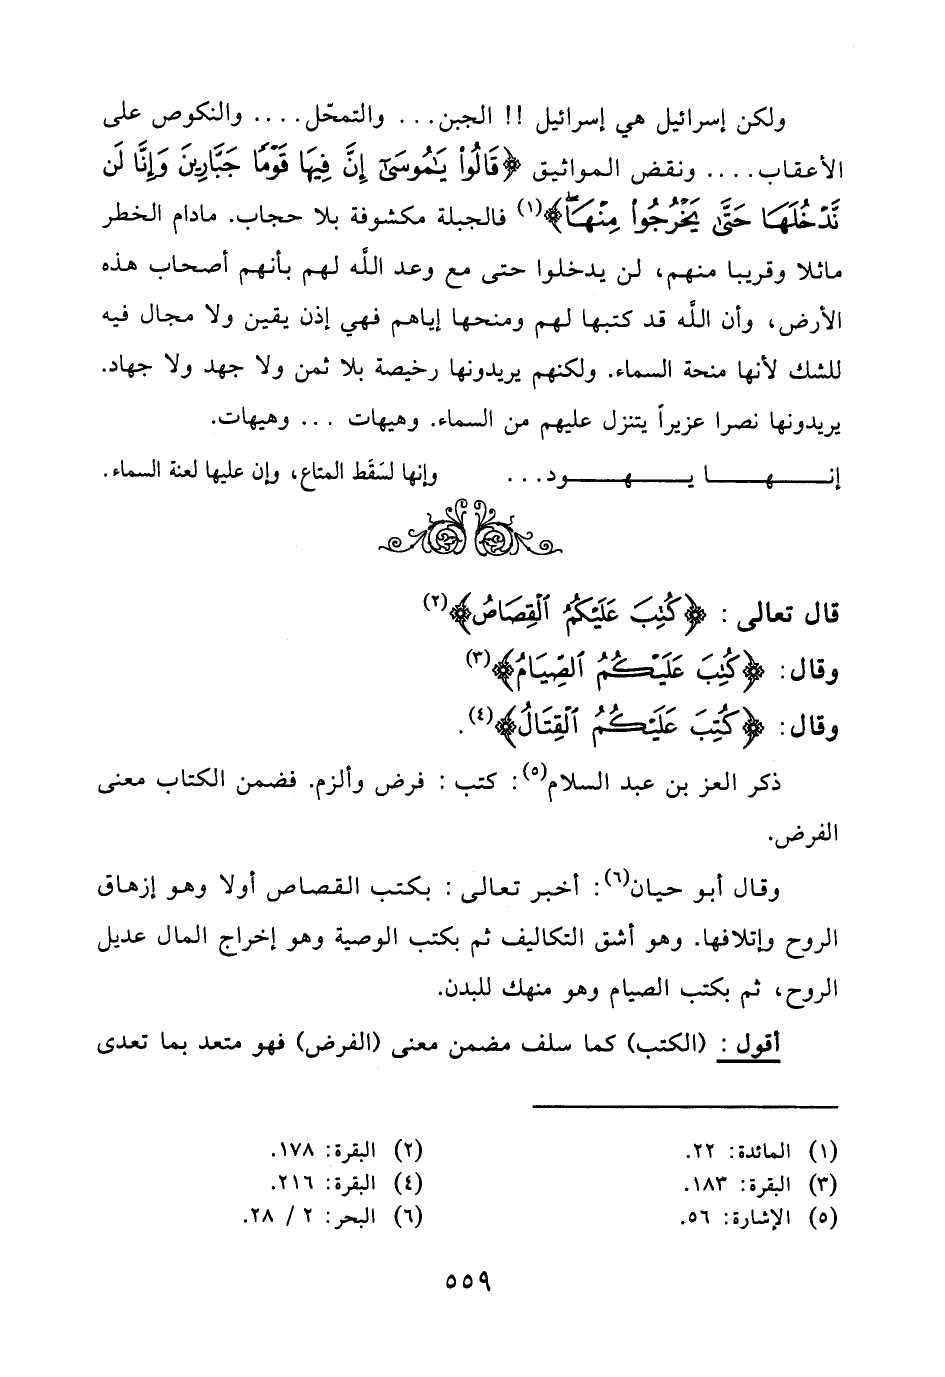 ولكن إسرائيل هي إسرائيل !! الجبن... والتمحّل.... والنكوص على
الأعقاب.... ونقض المواثيق ﴿قَالُوا۟ يَـٰمُوسَىٰٓ إِنَّ فِيهَا قَوْمًا جَبَّارِينَ وَإِنَّا لَن
نَّدْخُلَهَا حَتَّىٰ يَخْرُجُوا۟ مِنْهَا﴾(١) فالجبلة مكشوفة بلا حجاب. مادام الخطر
ماثلا وقريبا منهم، لن يدخلوا حتى مع وعد اللَّه لهم بأنهم أصحاب هذه
الأرض، وأن اللَّه قد كتبها لهم ومنحها إياهم فهي إذن يقين ولا مجال فيه
للشك لأنها منحة السماء. ولكنهم يريدونها رخيصة بلا ثمن ولا جهد ولا جهاد.
يريدونها نصرا عزيراً يتنزل عليهم من السماء. وهيهات ... وهيهات.
إنـــهـــا يـــهـــود... وإنها لسَقَط المتاع، وإن عليها لعنة السماء.
قال تعالى : ﴿كُتِبَ عَلَيْكُمُ ٱلْقِصَاصُ﴾(٢)
وقال: ﴿كُتِبَ عَلَيْكُمُ ٱلصِّيَامُ﴾(٣)
وقال: ﴿كُتِبَ عَلَيْكُمُ ٱلْقِتَالُ﴾(٤).
ذكر العز بن عبد السلام(٥): كتب : فرض وألزم. فضمن الكتاب معنى
الفرض.
وقال أبو حيان(٦): أخبر تعالى : بكتب القصاص أولا وهو إزهاق
الروح وإتلافها. وهو أشق التكاليف ثم بكتب الوصية وهو إخراج المال عديل
الروح، ثم بكتب الصيام وهو منهك للبدن.
أقول : (الكتب) كما سلف مضمن معنى (الفرض) فهو متعد بما تعدى
(١) المائدة: ٢٢. (٢) البقرة: ١٧٨.
(٣) البقرة: ١٨٣. (٤) البقرة: ٢١٦.
(٥) الإشارة: ٥٦. (٦) البحر: ٢ / ٢٨.
٥٥٩